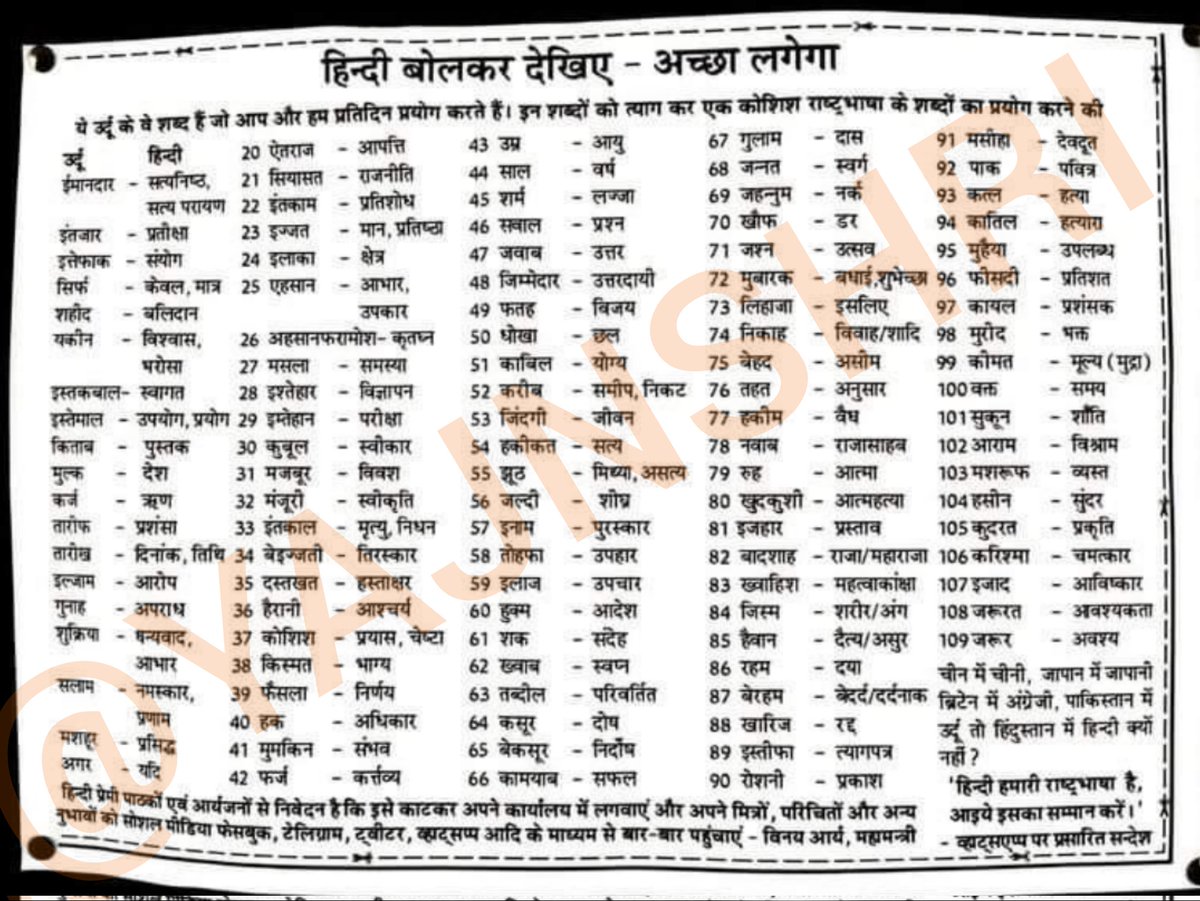 हिन्दी बोलकर देखिए - अच्छा लगेगा
ये उर्दू के वे शब्द हैं जो आप और हम प्रतिदिन प्रयोग करते हैं। इन शब्दों को त्याग कर एक कोशिश राष्ट्भाषा के शब्दों का प्रयोग करने की
उर्दू हिन्दी
ईमानदार - सत्यनिष्ठ,
सत्य परायण
इंतजार - प्रतीक्षा
इत्तेफाक - संयोग
सिर्फ - केवल, मात्र
शहीद - बलिदान
यकीन - विश्वास,
भरोसा
इस्तकबाल- स्वागत
इस्तेमाल - उपयोग, प्रयोग
किताब - पुस्तक
मुल्क - देश
कर्ज - ऋण
तारीफ - प्रशंसा
तारीख - दिनांक, तिथि
इल्जाम - आरोप
गुनाह - अपराध
शुक्रिया - धन्यवाद,
आभार
सलाम - नमस्कार,
प्रणाम
मशहूर - प्रसिद्ध
अगर - यदि
20 ऐतराज - आपत्ति
21 सियासत - राजनीति
22 इंतकाम - प्रतिशोध
23 इज्जत - मान, प्रतिष्ठा
24 इलाका - क्षेत्र
25 एहसान - आभार,
उपकार
26 अहसानफरामोश- कृतघ्न
27 मसला - समस्या
28 इश्तेहार - विज्ञापन
29 इम्तेहान - परीक्षा
30 कुबूल - स्वीकार
31 मजबूर - विवश
32 मंजूरी - स्वीकृति
33 इंतकाल - मृत्यु, निधन
34 बेइज्जती - तिरस्कार
35 दस्तखत - हस्ताक्षर
36 हैरानी - आश्चर्य
37 कोशिश - प्रयास, चेष्टा
38 किस्मत - भाग्य
39 फैसला - निर्णय
40 हक - अधिकार
41 मुमकिन - संभव
42 फर्ज - कर्त्तव्य
43 उम्र - आयु
44 साल - वर्ष
45 शर्म - लज्जा
46 सवाल - प्रश्न
47 जवाब - उत्तर
48 जिम्मेदार - उत्तरदायी
49 फतह - विजय
50 धोखा - छल
51 काबिल - योग्य
52 करीब - समीप, निकट
53 जिंदगी - जीवन
54 हकीकत - सत्य
55 झूठ - मिथ्या, असत्य
56 जल्दी - शीघ्र
57 इनाम - पुरस्कार
58 तोहफा - उपहार
59 इलाज - उपचार
60 हुक्म - आदेश
61 शक - संदेह
62 ख्वाब - स्वप्न
63 तब्दील - परिवर्तित
64 कसूर - दोष
65 बेकसूर - निर्दोष
66 कामयाब - सफल
67 गुलाम - दास
68 जन्नत - स्वर्ग
69 जहन्नुम - नर्क
70 खौफ - डर
71 जश्न - उत्सव
72 मुबारक - बधाई,शुभेच्छा
73 लिहाजा - इसलिए
74 निकाह - विवाह/शादि
75 बेहद - असीम
76 तहत - अनुसार
77 हकीम - वैध
78 नवाब - राजासाहब
79 रुह - आत्मा
80 खुदकुशी - आत्महत्या
81 इजहार - प्रस्ताव
82 बादशाह - राजा/महाराजा
83 ख्वाहिश - महत्वाकांक्षा
84 जिस्म - शरीर/अंग
85 हैवान - दैत्य/असुर
86 रहम - दया
87 बेरहम - बेदर्द/दर्दनाक
88 खारिज - रद्द
89 इस्तीफा - त्यागपत्र
90 रोशनी - प्रकाश
91 मसीहा - देवदूत
92 पाक - पवित्र
93 कत्ल - हत्या
94 कातिल - हत्यारा
95 मुहैया - उपलब्ध
96 फीसदी - प्रतिशत
97 कायल - प्रशंसक
98 मुरीद - भक्त
99 कीमत - मूल्य (मुद्रा)
100 वक्त - समय
101 सुकून - शाँति
102 आराम - विश्राम
103 मशरूफ - व्यस्त
104 हसीन - सुंदर
105 कुदरत - प्रकृति
106 करिश्मा - चमत्कार
107 इजाद - आविष्कार
108 जरूरत - आवश्यकता
109 जरूर - अवश्य
चीन में चीनी, जापान में जापानी
ब्रिटेन में अंग्रेजी, पाकिस्तान में
उर्दू तो हिंदुस्तान में हिन्दी क्यों
नहीं ?
'हिन्दी हमारी राष्ट्भाषा है,
आइये इसका सम्मान करें।'
- व्हाट्सएप्प पर प्रसारित सन्देश
हिन्दी प्रेमी पाठकों एवं आर्यजनों से निवेदन है कि इसे काटकर अपने कार्यालय में लगवाएं और अपने मित्रों, परिचितों और अन्य
नुभावों को सोशल मीडिया फेसबुक, टेलिग्राम, ट्वीटर, व्हाट्सप्प आदि के माध्यम से बार-बार पहुंचाएं - विनय आर्य, महामन्त्री
@YAJNSHRI